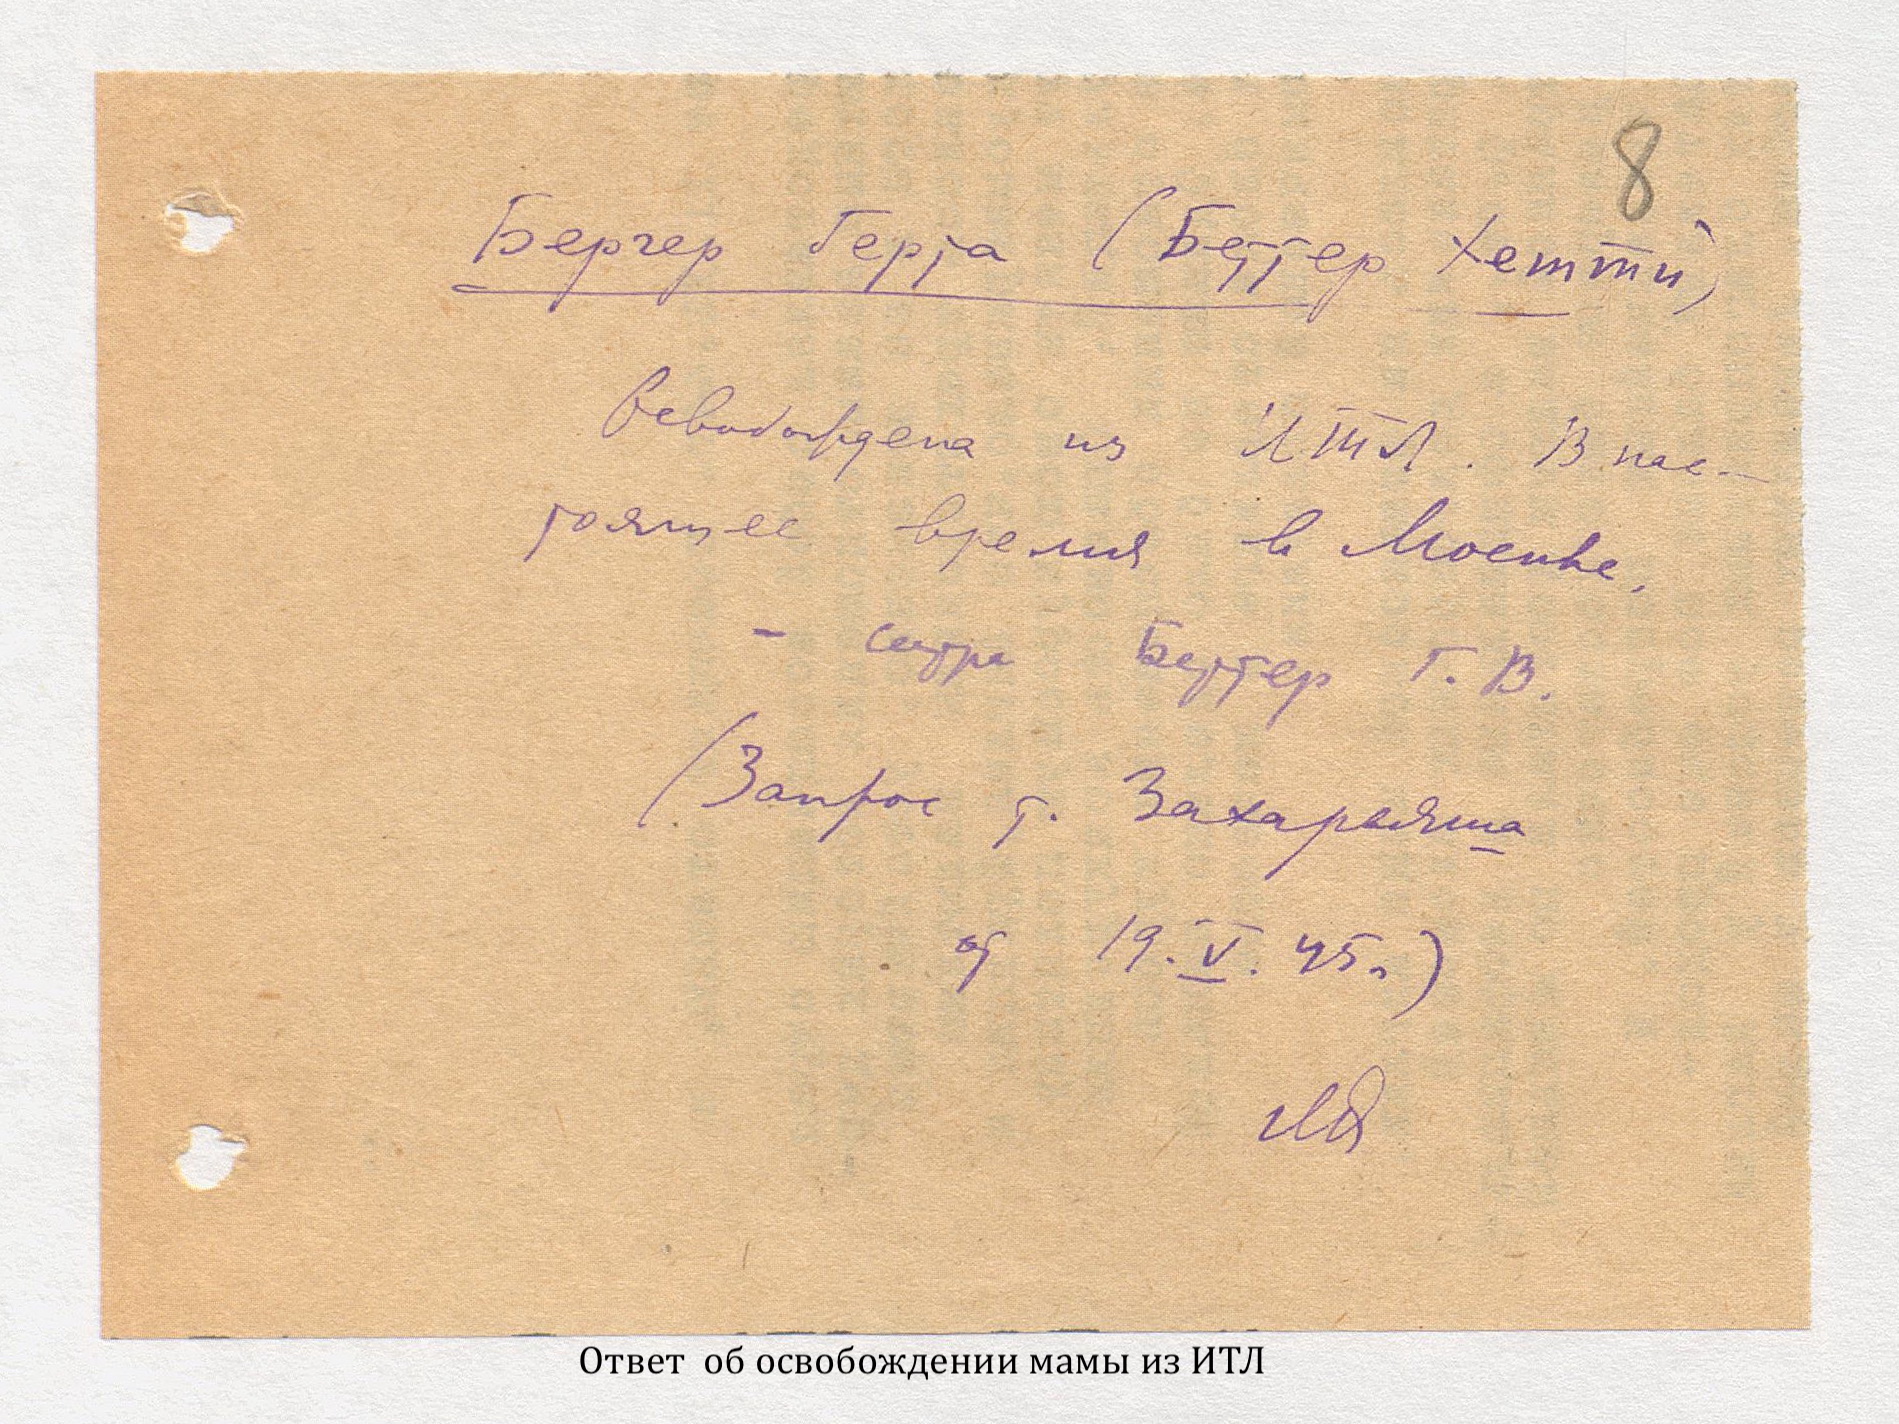 8
Бергер Герта (Беттер Хетти)
Освобождена из ИТЛ. В нас-
тоящее время в Москве,
- сестра Беттер Г. В.
(Запрос т. Захарьяша
от 19.V.45г.)
Ответ об освобождении мамы из ИТЛ